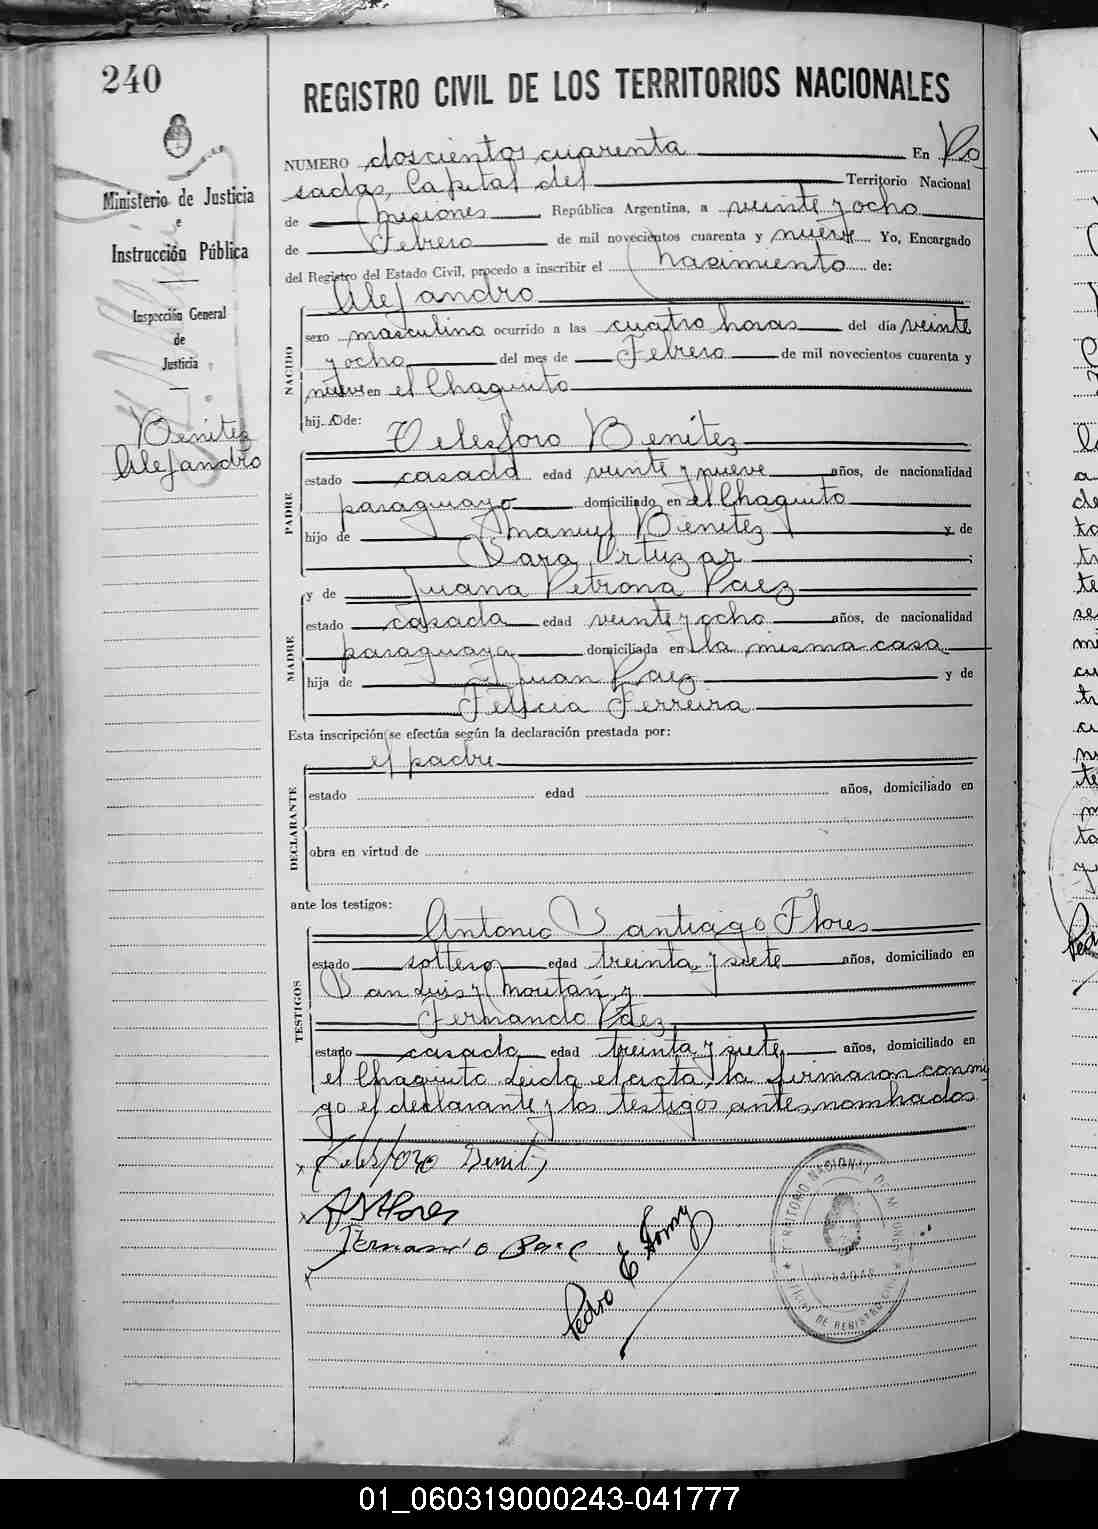 240
REGISTRO CIVIL DE LOS TERRITORIOS NACIONALES
Ministerio de Justicia
e
Instrucción Pública
Inspección General
de
Justicia
Benitez
Alejandro
NUMERO doscientos cuarenta En Po
sadas, Capital del Territorio Nacional
de Misiones República Argentina, a veinte y ocho
de Febrero de mil novecientos cuarenta y nueve Yo, Encargado
del Registro del Estado Civil, procedo a inscribir el nacimiento de:
Alejandro
NACIDO
sexo masculino ocurrido a las cuatro horas del día veinte
y ocho del mes de Febrero de mil novecientos cuarenta y
nueve en el Chaquito
hij.o de:
Telesforo Benitez
PADRE
estado casado edad veinte y nueve años, de nacionalidad
paraguayo domiciliado en el Chaquito
hijo de Manuel Benitez y de
Sara Ortuzar
y de Juana Petrona Paez
MADRE
estado casada edad veinte y ocho años, de nacionalidad
paraguaya domiciliada en la misma casa
hija de Juan Paez y de
Felicia Ferreira
Esta inscripción se efectúa según la declaración prestada por:
el padre
DECLARANTE
estado edad años, domiciliado en
obra en virtud de
ante los testigos:
Antonio Santiago Flores
TESTIGOS
estado soltero edad treinta y siete años, domiciliado en
San Luis y Moután, y
Fernando Páez
estado casado edad treinta y siete años, domiciliado en
el Chaquito Leida el acta, la firmaron conmi
go el declarante y los testigos antes nombrados
Telesforo Benit
ASFlores
Fernando Paez
Pedro E
TERRITORIO NACIONAL DE MISIONES
POSADAS
OFICINA DE REGISTRO CIVIL
01_060319000243-041777